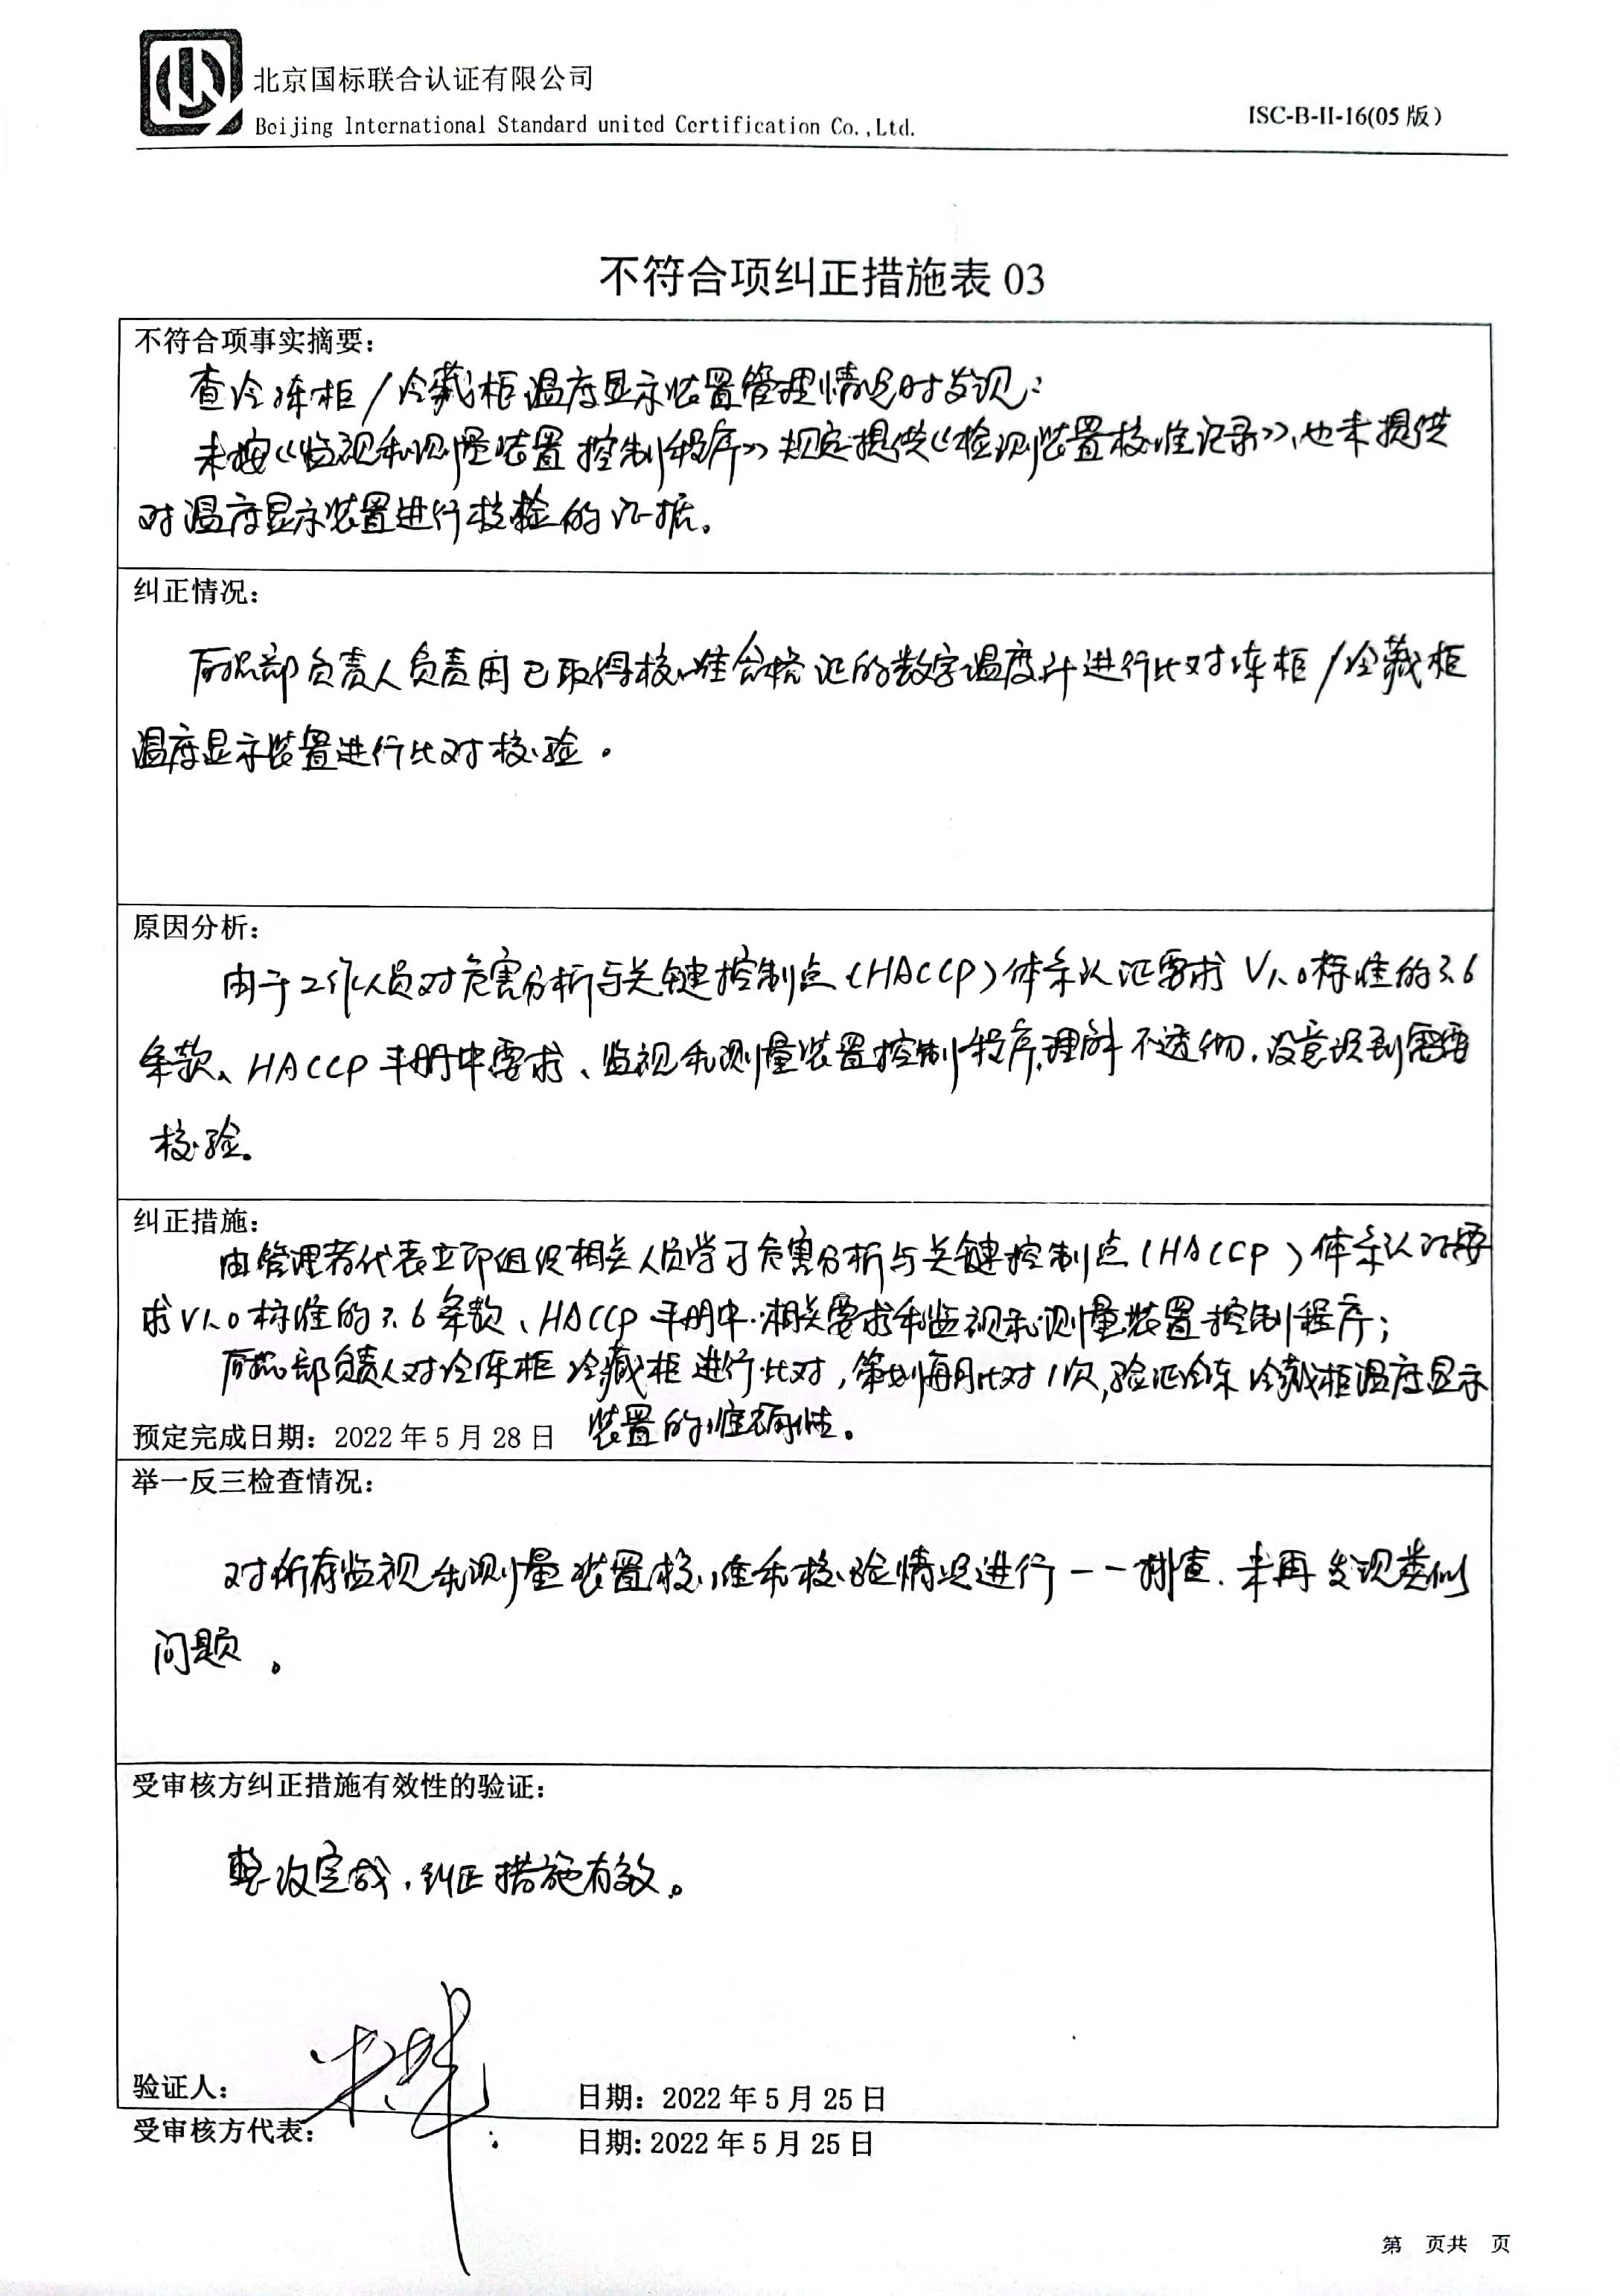 北京国标联合认证有限公司
Beijing International Standard united Certification Co.,Ltd.
ISC-B-II-16(05版)
不符合项纠正措施表 03
不符合项事实摘要:
查冷冻柜/冷藏柜温度显示装置管理情况时发现:
未按《监视和测量装置控制程序》规定提供《检测装置校准记录》,也未提供
对温度显示装置进行校检的证据。
纠正情况:
品部负责人负责用已取得校准合格证的数字温度计进行比对冻柜/冷藏柜
温度显示装置进行比对校验。
原因分析:
由于工作人员对危害分析与关键控制点(HACCP)体系认证要求V1.0标准的3.6
条款、HACCP手册中要求、监视和测量装置控制程序理解不透彻,没意识到需要
校验。
纠正措施:
由管理者代表立即组织相关人员学习危害分析与关键控制点(HACCP)体系认证要
求V1.0标准的3.6条款、HACCP手册中相关要求和监视和测量装置控制程序;
品部负责人对冷冻柜冷藏柜进行比对,策划每月比对1次,验证冷冻冷藏柜温度显示
装置的准确性。
预定完成日期: 2022年5月28日
举一反三检查情况:
对所有监视和测量装置校准和校验情况进行一一排查,未再发现类似
问题。
受审核方纠正措施有效性的验证:
整改完成,纠正措施有效。
验证人: 日期: 2022年5月25日
受审核方代表: 日期: 2022年5月25日
第 页共 页